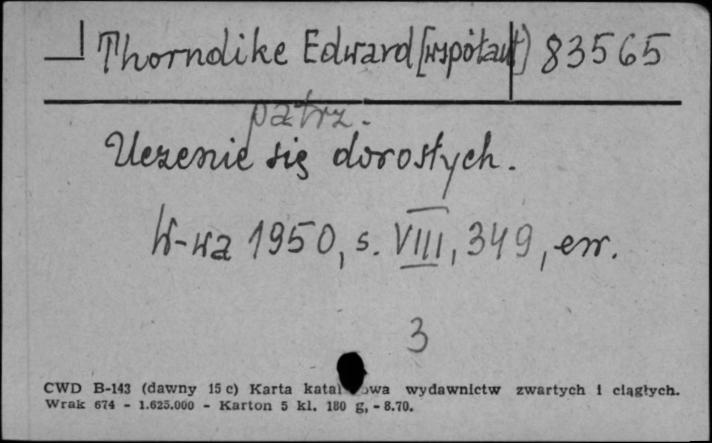 Thorndike Edward [współaut] 83565
patrz.
Uczenie się dorosłych.
W-wa 1950, s. VIII, 349, err.
3
CWD B-143 (dawny 15 c) Karta wydawnictw zwartych i ciągłych.
Wrak 674 - 1.625.000 - Karton 5 kl. 180 g, - 8.70.